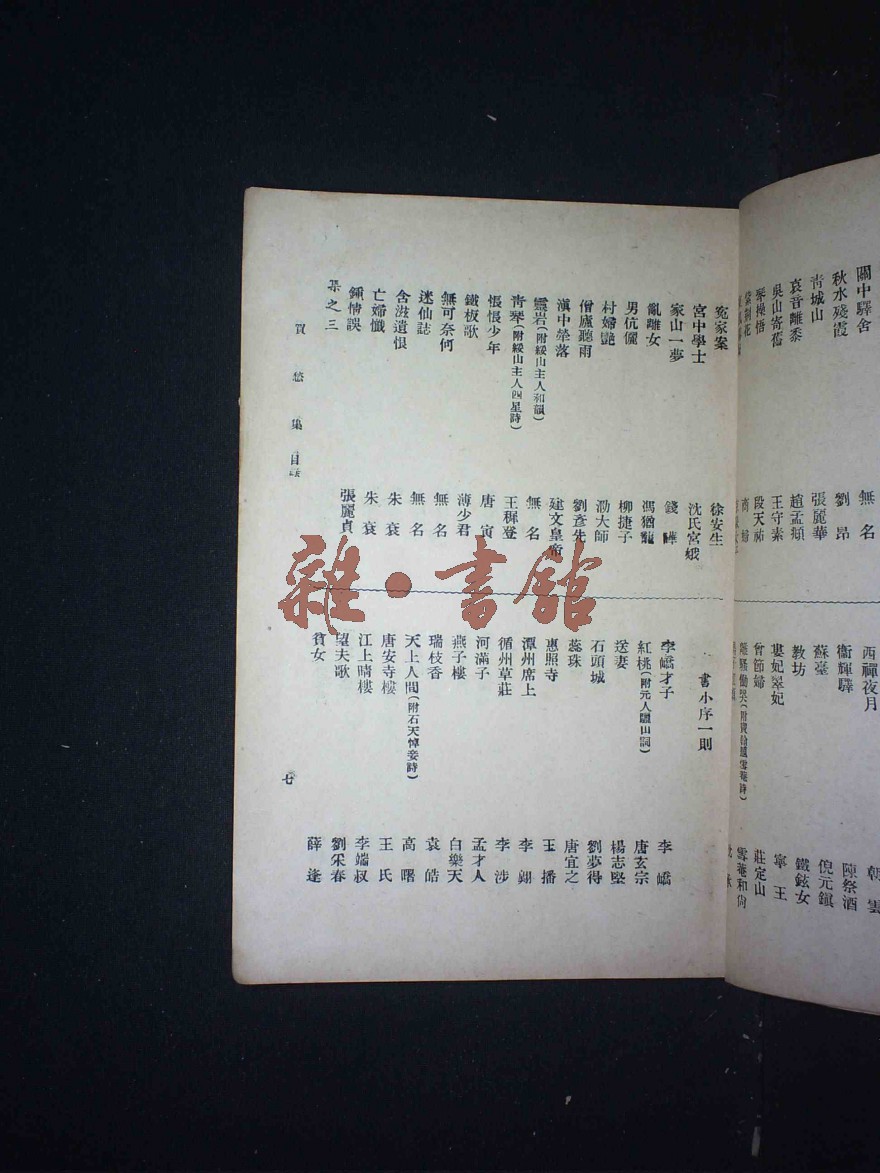 關中驛舍　無名
秋水殘霞　劉昂
青城山　張麗華
哀音離黍　趙孟頫
吳山寄舊　王守素
琴操悟　段天祐
西禪夜月　朝雲
衞輝驛　陳祭酒
蘇臺　倪元鎮
教坊　鐵鉉女
婁妃翠妃　寧王
曾節婦　莊定山
雪菴和尙
寃家案　徐安生
宮中學士　沈氏宮娥
家山一夢　錢
亂離女　馮猶龍
男伉儷　柳捷子
村婦艷　泐大師
僧廬聽雨　劉彥先
滇中犖落　建文皇帝
靈岩(附綏山主人和韻)　無名
靑琴(附綏山主人四星詩)　王穉登
悵悵少年　唐寅
鐵板歌　薄少君
無可奈何　無名
迷仙誌　無名
含滋遺恨　朱衰
亡婦懺　朱衰
鍾情誤　張麗貞
集之三
書小序一則
李嶠才子　李嶠
紅桃(附元人驪山詞)　唐玄宗
送妻　楊志堅
石頭城　劉夢得
蕊珠　唐宜之
惠照寺　王播
潭州席上　李翊
循州草莊　李涉
河滿子　孟才人
燕子樓　白樂天
瑞枝香　袁皓
天上人間(附石天悼妾詩)　高曙
唐安寺樓　王氏
江上晴樓　李端叔
望夫歌　劉采春
貧女　薛逢
買愁集目錄
七
雜·書館